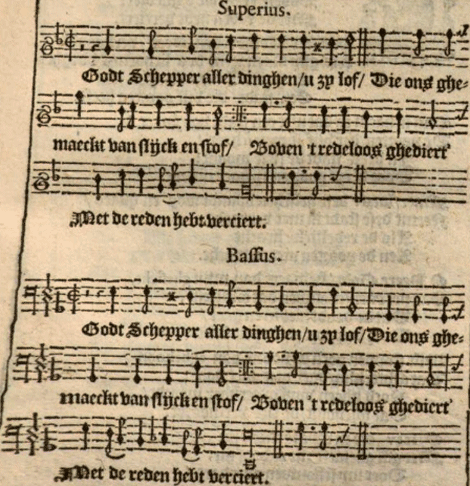 Superius.
Godt Schepper aller dinghen/u zy lof/ Die ons ghe-
maeckt van slijck en stof/ Boven 't redeloos ghediert'
Met de reden hebt verciert.
Bassus.
Godt Schepper aller dinghen/u zy lof/Die ons ghe-
maeckt van slijck en stof/ Boven 't redeloos ghediert'
Met de reden hebt verciert.